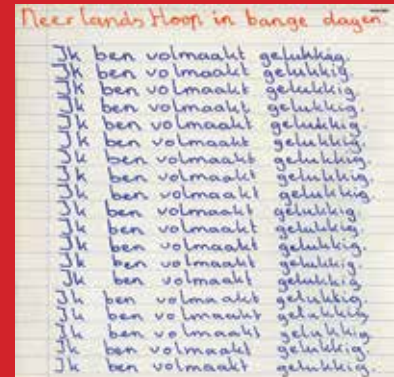 Neerlands Hoop in bange dagen.
Ik ben volmaakt gelukkig.
Ik ben volmaakt gelukkig.
Ik ben volmaakt gelukkig.
Ik ben volmaakt gelukkig.
Ik ben volmaakt gelukkig.
Ik ben volmaakt gelukkig.
Ik ben volmaakt gelukkig.
Ik ben volmaakt gelukkig.
Ik ben volmaakt gelukkig.
Ik ben volmaakt gelukkig.
Ik ben volmaakt gelukkig.
Ik ben volmaakt gelukkig.
Ik ben volmaakt gelukkig.
Ik ben volmaakt gelukkig.
Ik ben volmaakt gelukkig.
Ik ben volmaakt gelukkig.
Ik ben volmaakt gelukkig.
Ik ben volmaakt gelukkig.